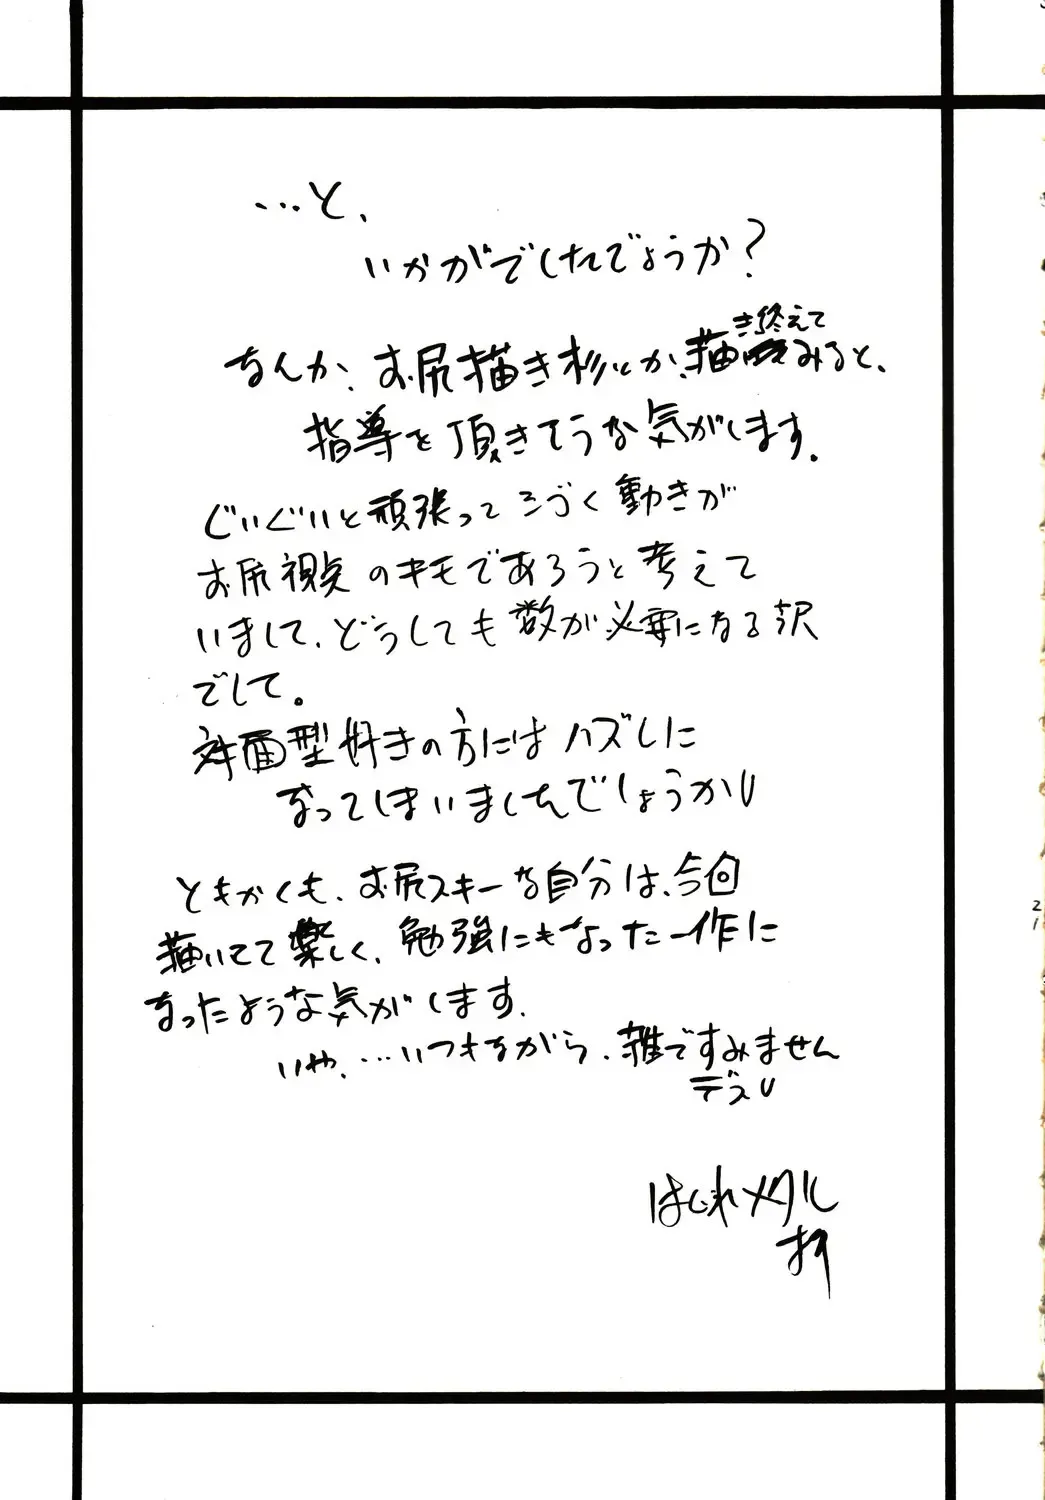 …と、
いかがでしたでしょうか?
なんか、お尻描き杉とか、描き終えてみると、
指導を頂きそうな気がします。
ぐいぐいと頑張ってうごく動きが
お尻視点のキモであろうと考えて
いまして、どうしても数が必要になる訳
でして。
対面型好きの方にはハズしに
なってしまいましたでしょうか
ともかくも、お尻スキーな自分は、今回
描いてて楽しく、勉強にもなった一作に
なったような気がします。
いや、…いつもながら、雑ですみません
デス
はじめメタル
21